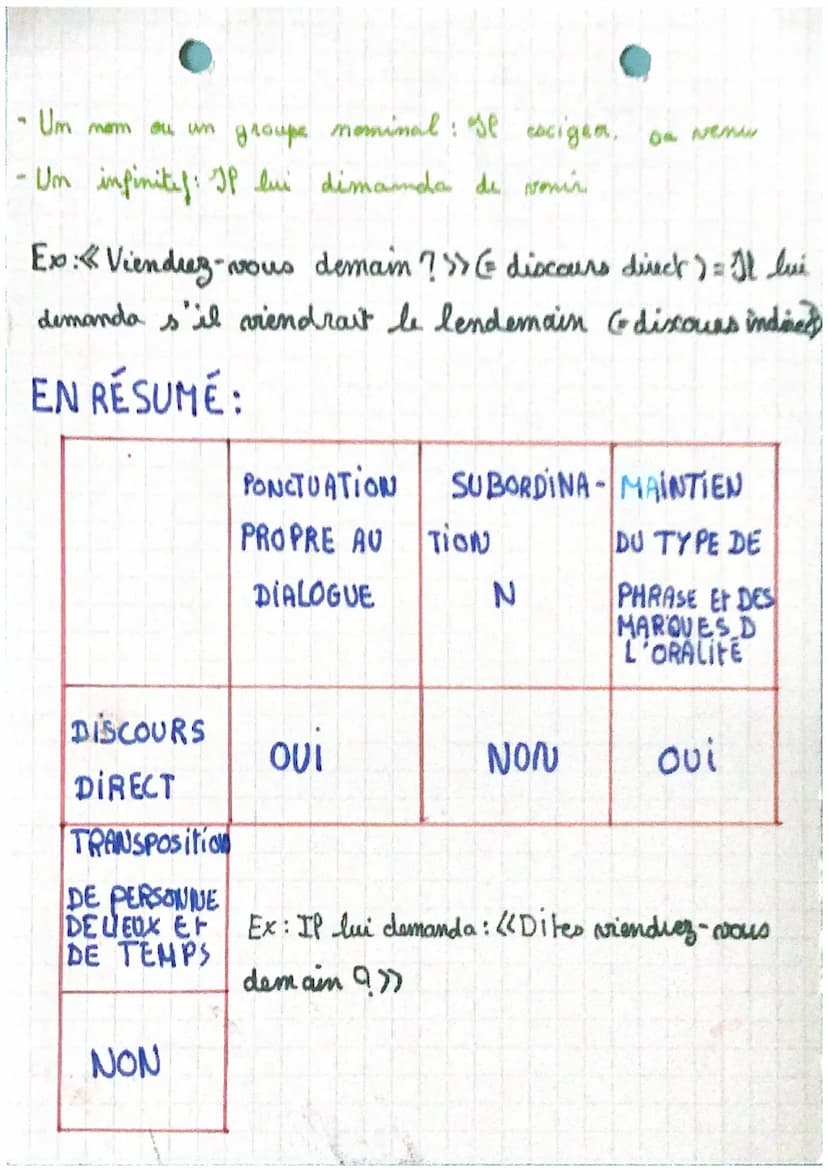 - Un nom ou un groupe nominal : Il exigea sa venue
- Un infinitif: Il lui dimanda de venir
Ex:« Viendrez-vous demain ? » (= discours direct) = Il lui
demanda s'il viendrait le lendemain (= discours indirect)
EN RÉSUMÉ :
PONCTUATION
PROPRE AU
DIALOGUE
SUBORDINA-
TION
N
MAINTIEN
DU TYPE DE
PHRASE Et DES
MARQUES D
L'ORALITÉ
DISCOURS
DIRECT
OUI
NON
OUI
TRANSPOSITION
DE PERSONNE
DE LIEUX Et
DE TEMPS
Ex : Il lui demanda : «Dites viendrez-vous
demain ?»
NON